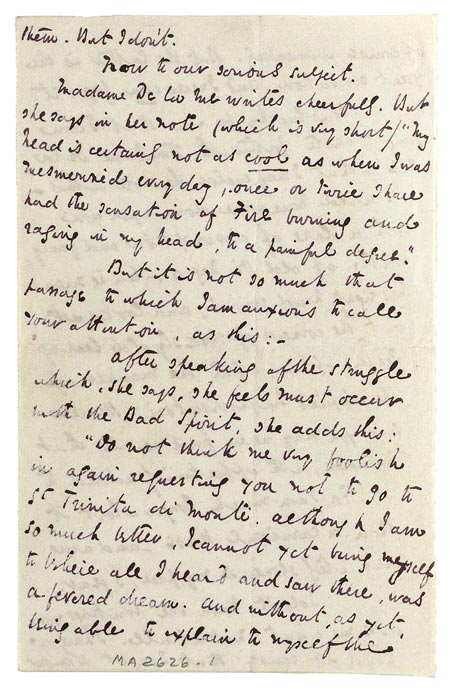 them. But I don't.
Now to our serious subject.
Madame De la Rue writes cheerfully. But
she says in her note (which is very short) "My
head is certainly not as cool as when I was
Mesmerized every day, once or twice I have
had the sensation of Fire burning and
raging in my head, to a painful degree."
But it is not so much that
passage to which I am anxious to call
your attention, as this:–
After speaking of the struggle
which, she says, she feels must occur
with the Bad Spirit, she adds this:
"Do not think me very foolish
in again requesting you not to go to
St Trinita di Monte. although I am
so much better, I cannot yet bring myself
to believe all I heard and saw there, was
a fevered dream. and without, as yet,
being able to explain to myself the
MA2626.1